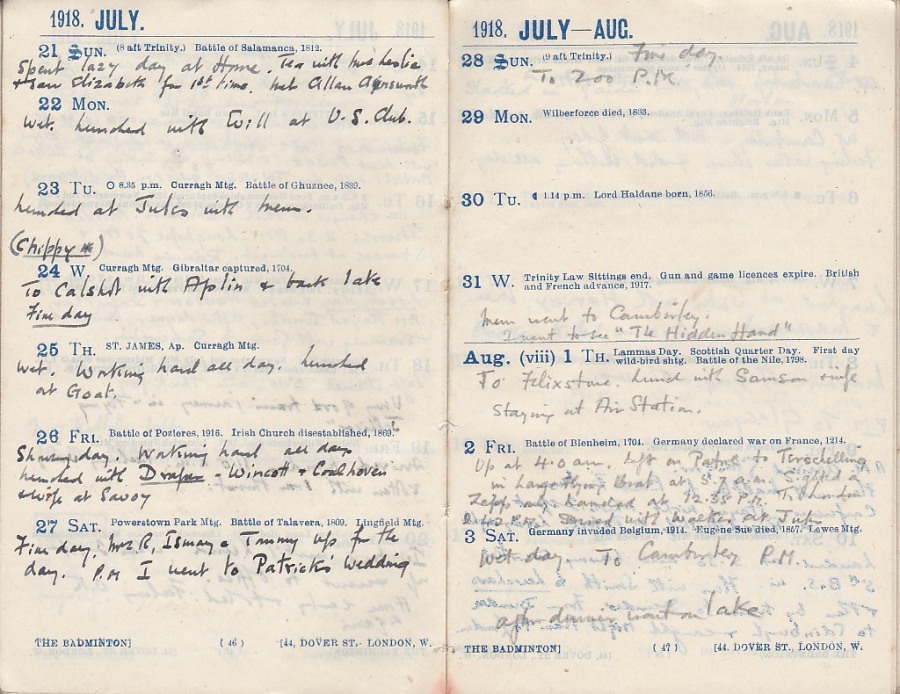 1918. JULY.
21 SUN. (8 aft Trinity.) Battle of Salamanca, 1812.
Spent lazy day at Home. Tea with Mrs Leslie
+ saw Elizabeth for 1st time. Met Allan
22 MON.
Wet. Lunched with Will at U.S. Club.
23 TU. 8.35 p.m. Curragh Mtg. Battle of Ghuznee, 1839.
Lunched at Jules with Mem.
(Chippy *)
24 W. Curragh Mtg. Gibraltar captured, 1704.
To Calshot with Aplin + back late
Fine day
25 TH. ST. JAMES, Ap. Curragh Mtg.
Wet. Working hard all day. Lunched
at Goat.
26 FRI. Battle of Pozieres, 1916. Irish Church disestablished, 1869.
Showery day. Working hard all day
Lunched with Draper Wincott +
+ wife at Savoy
27 SAT. Powerstown Park Mtg. Battle of Talavera, 1809. Lingfield Mtg.
Fine day. Mrs R, Ismay + Tommy up for the
day. P.M I went to Patrick's Wedding
THE BADMINTON] (46) [44, DOVER ST., LONDON, W.
1918. JULY—AUG.
28 SUN. (9 aft Trinity.) Fine day.
To Zoo P.M.
29 MON. Wilberforce died, 1833.
30 TU. 1.14 p.m. Lord Haldane born, 1856.
31 W. Trinity Law Sittings end. Gun and game licences expire. British
and French advance, 1917.
Mem went to Camberley.
I went to see "The Hidden Hand"
Aug. (viii) 1 TH. Lammas Day. Scottish Quarter Day. First day
wild-bird shtg. Battle of the Nile, 1798.
To Felixstowe. Lunch with Samson + wife
Staying at Air Station.
2 FRI. Battle of Blenheim, 1704. Germany declared war on France, 1914.
Up at 4.0 am. Left on Patrol to Terschelling
in Large Flying Boat at 5.7 a.m. Sighted a
Zepp only. Landed at 12.30 P.M. To London
Dined with at Jules
3 SAT. Germany invaded Belgium, 1914. Eugène Sue died, 1857. Lewes Mtg.
Wet day To Camberley P.M.
after dinner went on lake
THE BADMINTON] (47) [44, DOVER ST., LONDON, W.